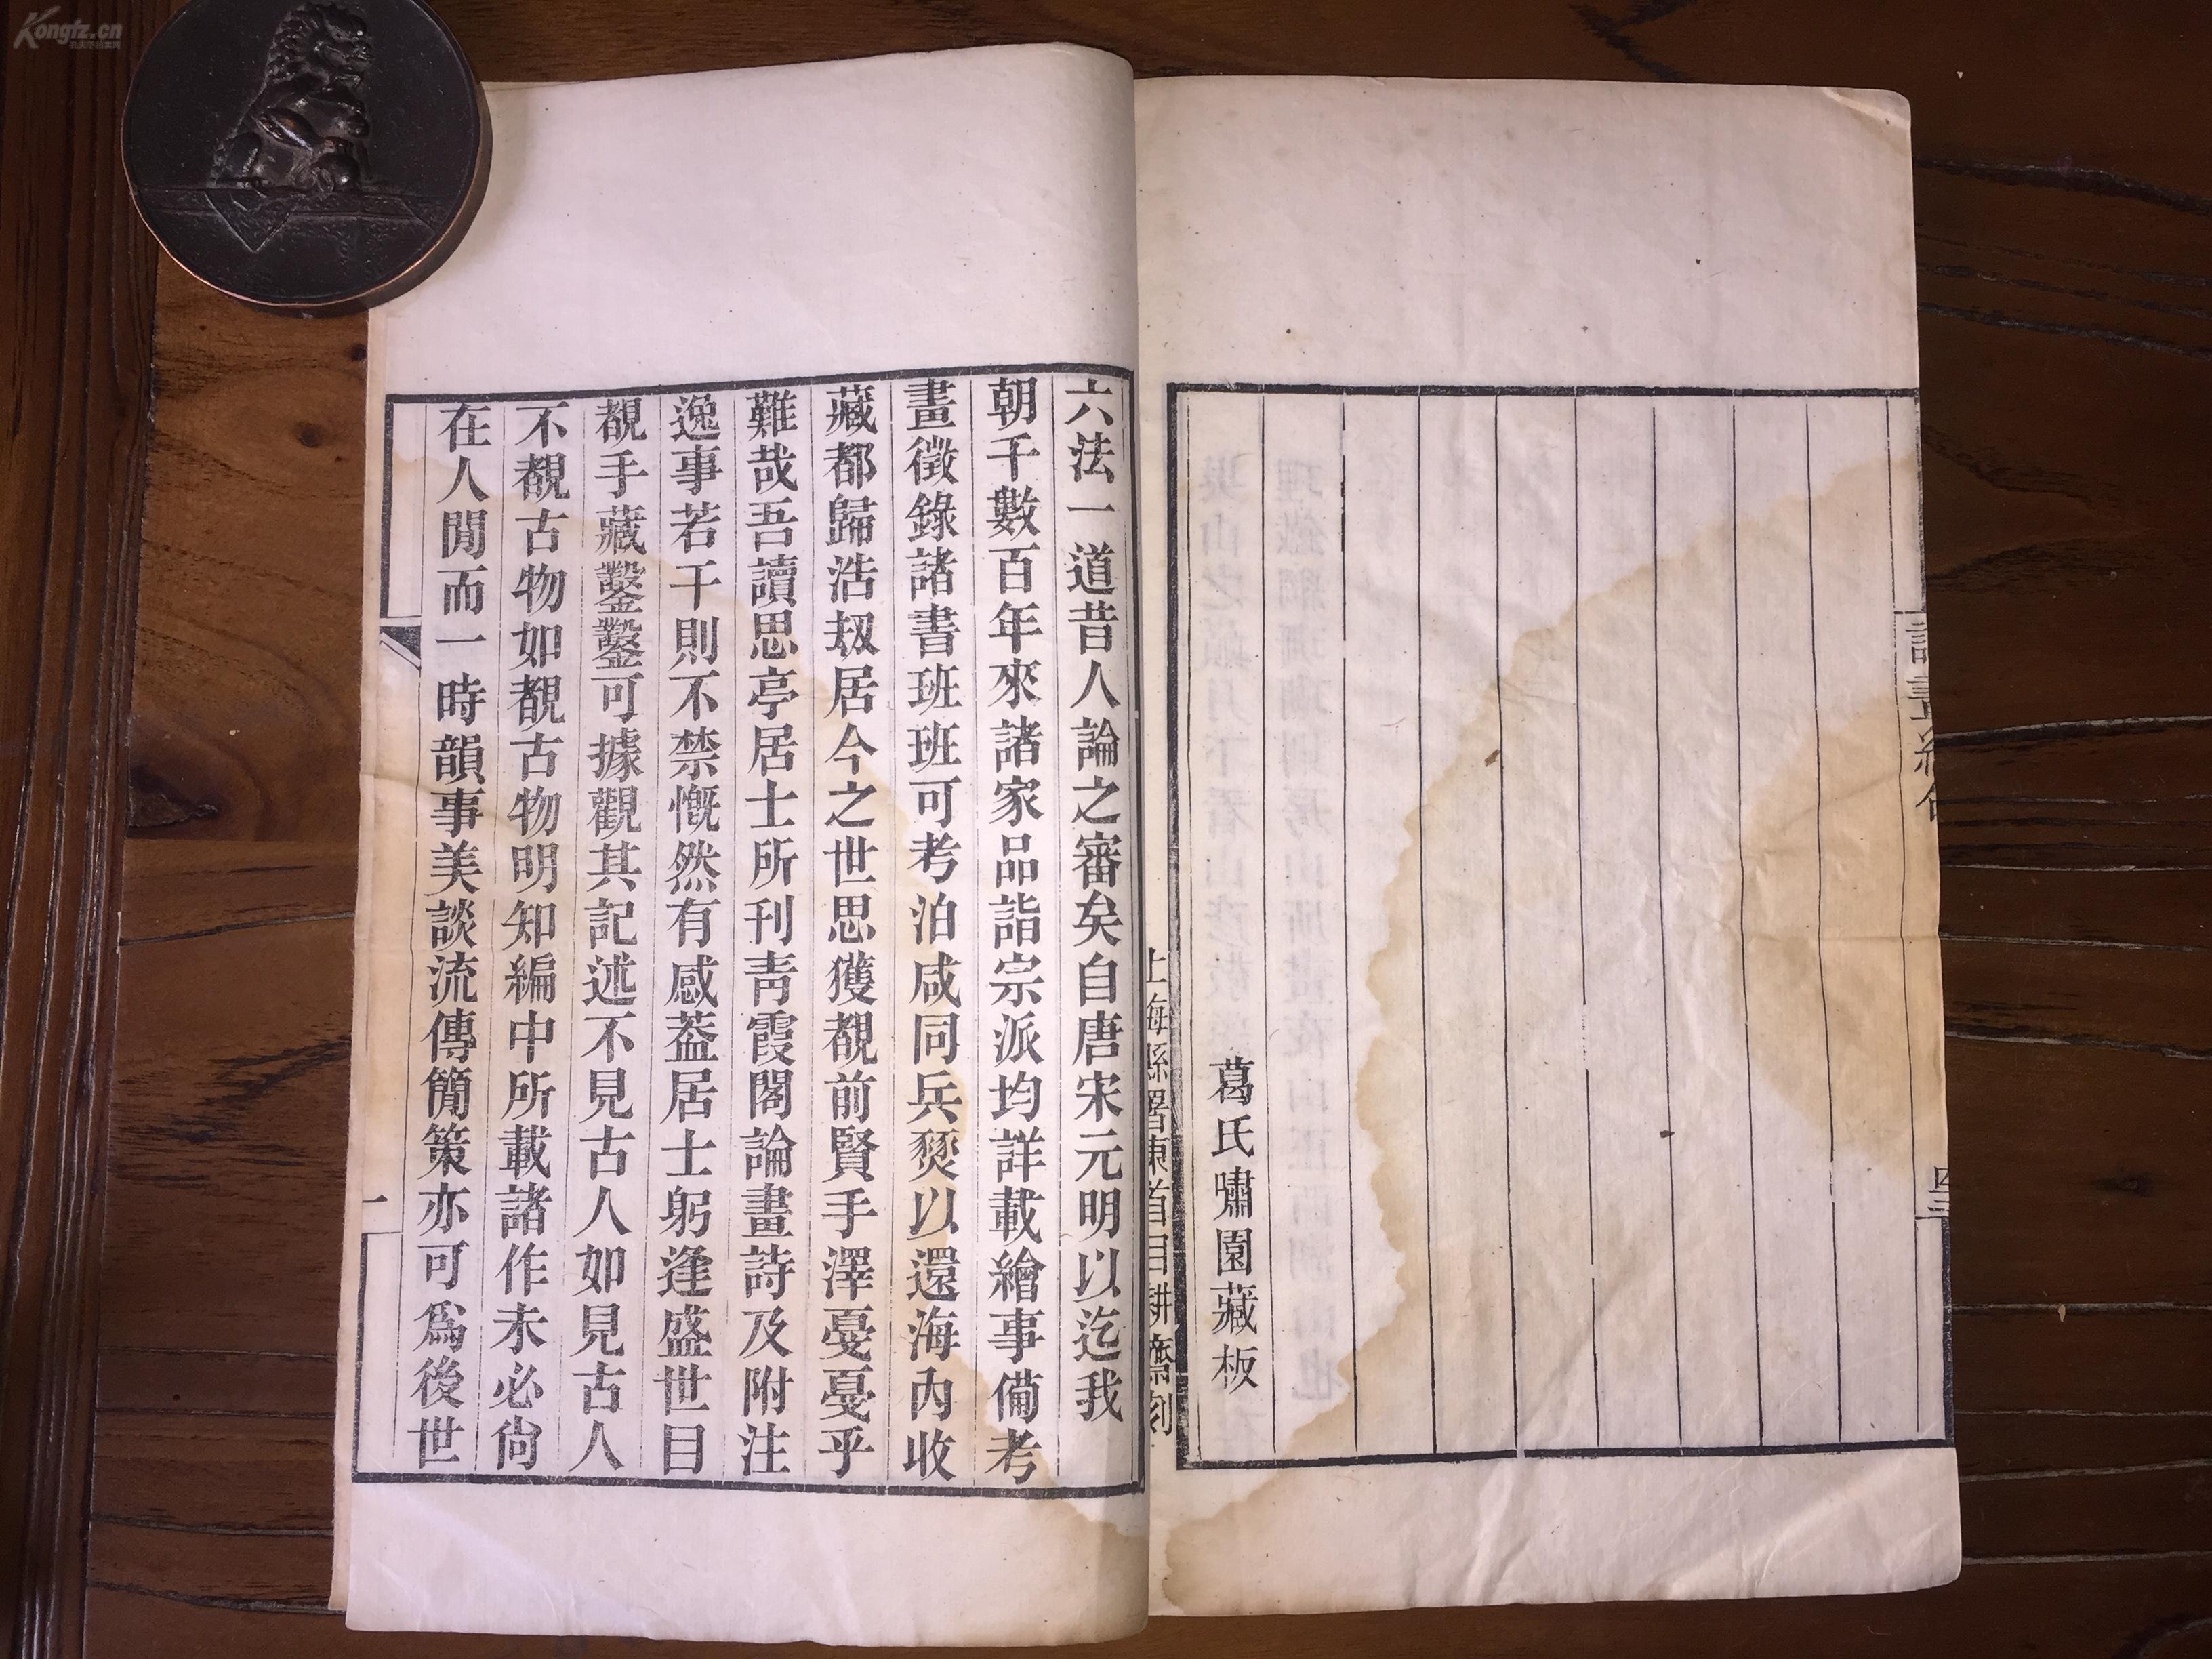 Kongfz.cn
論畫絕句
四三
葛氏嘯園藏板
上海縣署東首目耕齋刻
六法一道昔人論之審矣自唐宋元明以迄我
朝千數百年來諸家品詣宗派均詳載繪事備考
畫徵錄諸書班班可考洎咸同兵燹以還海內收
藏都歸浩刼居今之世思獲覩前賢手澤戞戞乎
難哉吾讀思亭居士所刊靑霞閣論畫詩及附注
逸事若干則不禁慨然有感葢居士躬逢盛世目
覩手藏鑿鑿可據觀其記述不見古人如見古人
不覩古物如覩古物明知編中所載諸作未必尙
在人閒而一時韻事美談流傳簡策亦可爲後世
一